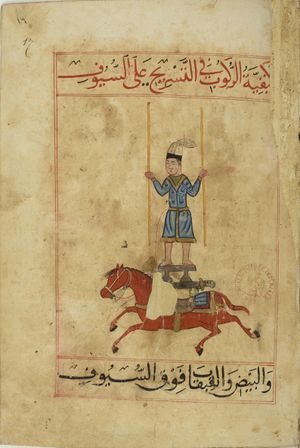 كيفية الركوب في التسريح على السيوف
والبيض والقبقاب فوق السيوف